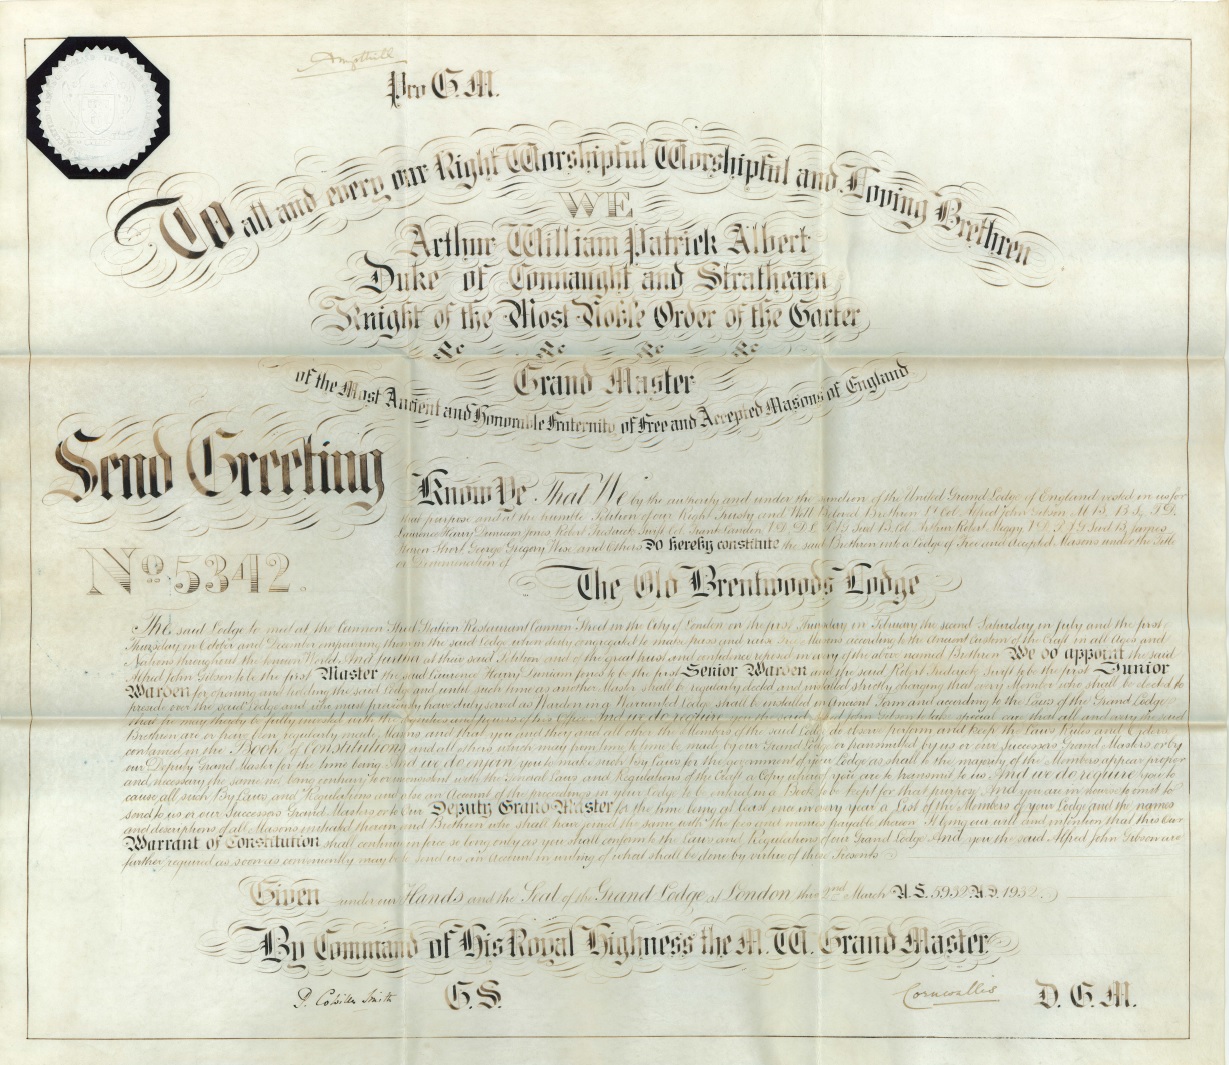 Ampthill
Pro G.M.
To all and every our Right Worshipful Worshipful and Loving Brethren
WE
Arthur William Patrick Albert
Duke of Connaught and Strathearn
Knight of the Most Noble Order of the Garter
&c &c &c &c
Grand Master
of the Most Ancient and Honorable Fraternity of Free and Accepted Masons of England
Send Greeting
Know Ye That We by the authority and under the sanction of the United Grand Lodge of England vested in us for
that purpose and at the humble Petition of our Right Trusty and Well Beloved Brethren Lt Col. Alfred John Gibson M.B. B.S. T.D.
Laurence Harry Duniam Jones Robert Frederick Swift Col. Grant V.D. D.L. Col. Arthur Robert Meggy V.D. James
Short George Gregory Wise and Others Do hereby constitute the said Brethren into a Lodge of Free and Accepted Masons under the Title
or Denomination of
No. 5342.
The Old Brentwoods Lodge
The said Lodge to meet at the Cannon Street Station Restaurant Cannon Street in the City of London on the first Thursday in February the second Saturday in July and the first
Thursday in October and December empowering them in the said Lodge when duly congregated to make pass and raise Free Masons according to the Ancient Custom of the Craft in all Ages and
Nations throughout the known World And further at their said Petition and of the great trust and confidence reposed in every of the above named Brethren We do appoint the said
Alfred John Gibson to be the first Master the said Laurence Harry Duniam Jones to be the first Senior Warden and the said Robert Frederick Swift to be the first Junior
Warden for opening and holding the said Lodge and until such time as another Master shall be regularly elected and installed strictly charging that every Member who shall be elected to
preside over the said Lodge and who must previously have duly served as Warden in a Warranted Lodge shall be installed in Ancient Form and according to the Laws of the Grand Lodge
that he may thereby be fully invested with the Dignities and Powers of his Office And we do require you the said Alfred John Gibson to take special care that all and every the said
Brethren are or have been regularly made Masons and that you and they and all other the Members of the said Lodge do observe perform and keep the Laws Rules and Orders
contained in the Book of Constitutions and all others which may from time to time be made by our Grand Lodge or transmitted by us or our Successors Grand Masters or by
our Deputy Grand Master for the time being And we do enjoin you to make such By Laws for the government of your Lodge as shall to the majority of the Members appear proper
and necessary the same not being contrary to or inconsistent with the General Laws and Regulations of the Craft a Copy whereof you are to transmit to us And we do require you to
cause all such By Laws and Regulations and also an Account of the proceedings in your Lodge to be entered in a Book to be kept for that purpose And you are in nowise to omit to
send to us or our Successors Grand Masters or to Our Deputy Grand Master for the time being at least once in every year a List of the Members of your Lodge and the names
and descriptions of all Masons initiated therein and Brethren who shall have joined the same with the fees and monies payable thereon It being our will and intention that this Our
Warrant of Constitution shall continue in force so long only as you shall conform to the Laws and Regulations of our Grand Lodge And you the said Alfred John Gibson are
further required as soon as conveniently may be to send us an Account in writing of what shall be done by virtue of these Presents
Given under our Hands and the Seal of the Grand Lodge at London, this 2nd March A.L. 5932 A.D. 1932.
By Command of His Royal Highness the M.W. Grand Master
P. Colville Smith G.S.
Cornwallis D.G.M.